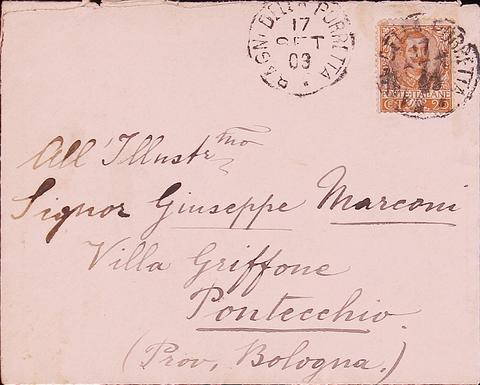 BAGNI DELLA PORRETTA
17
SET
03
POSTE ITALIANE
All' Illustrmo
Signor Giuseppe Marconi
Villa Griffone
Pontecchio
(Prov. Bologna.)